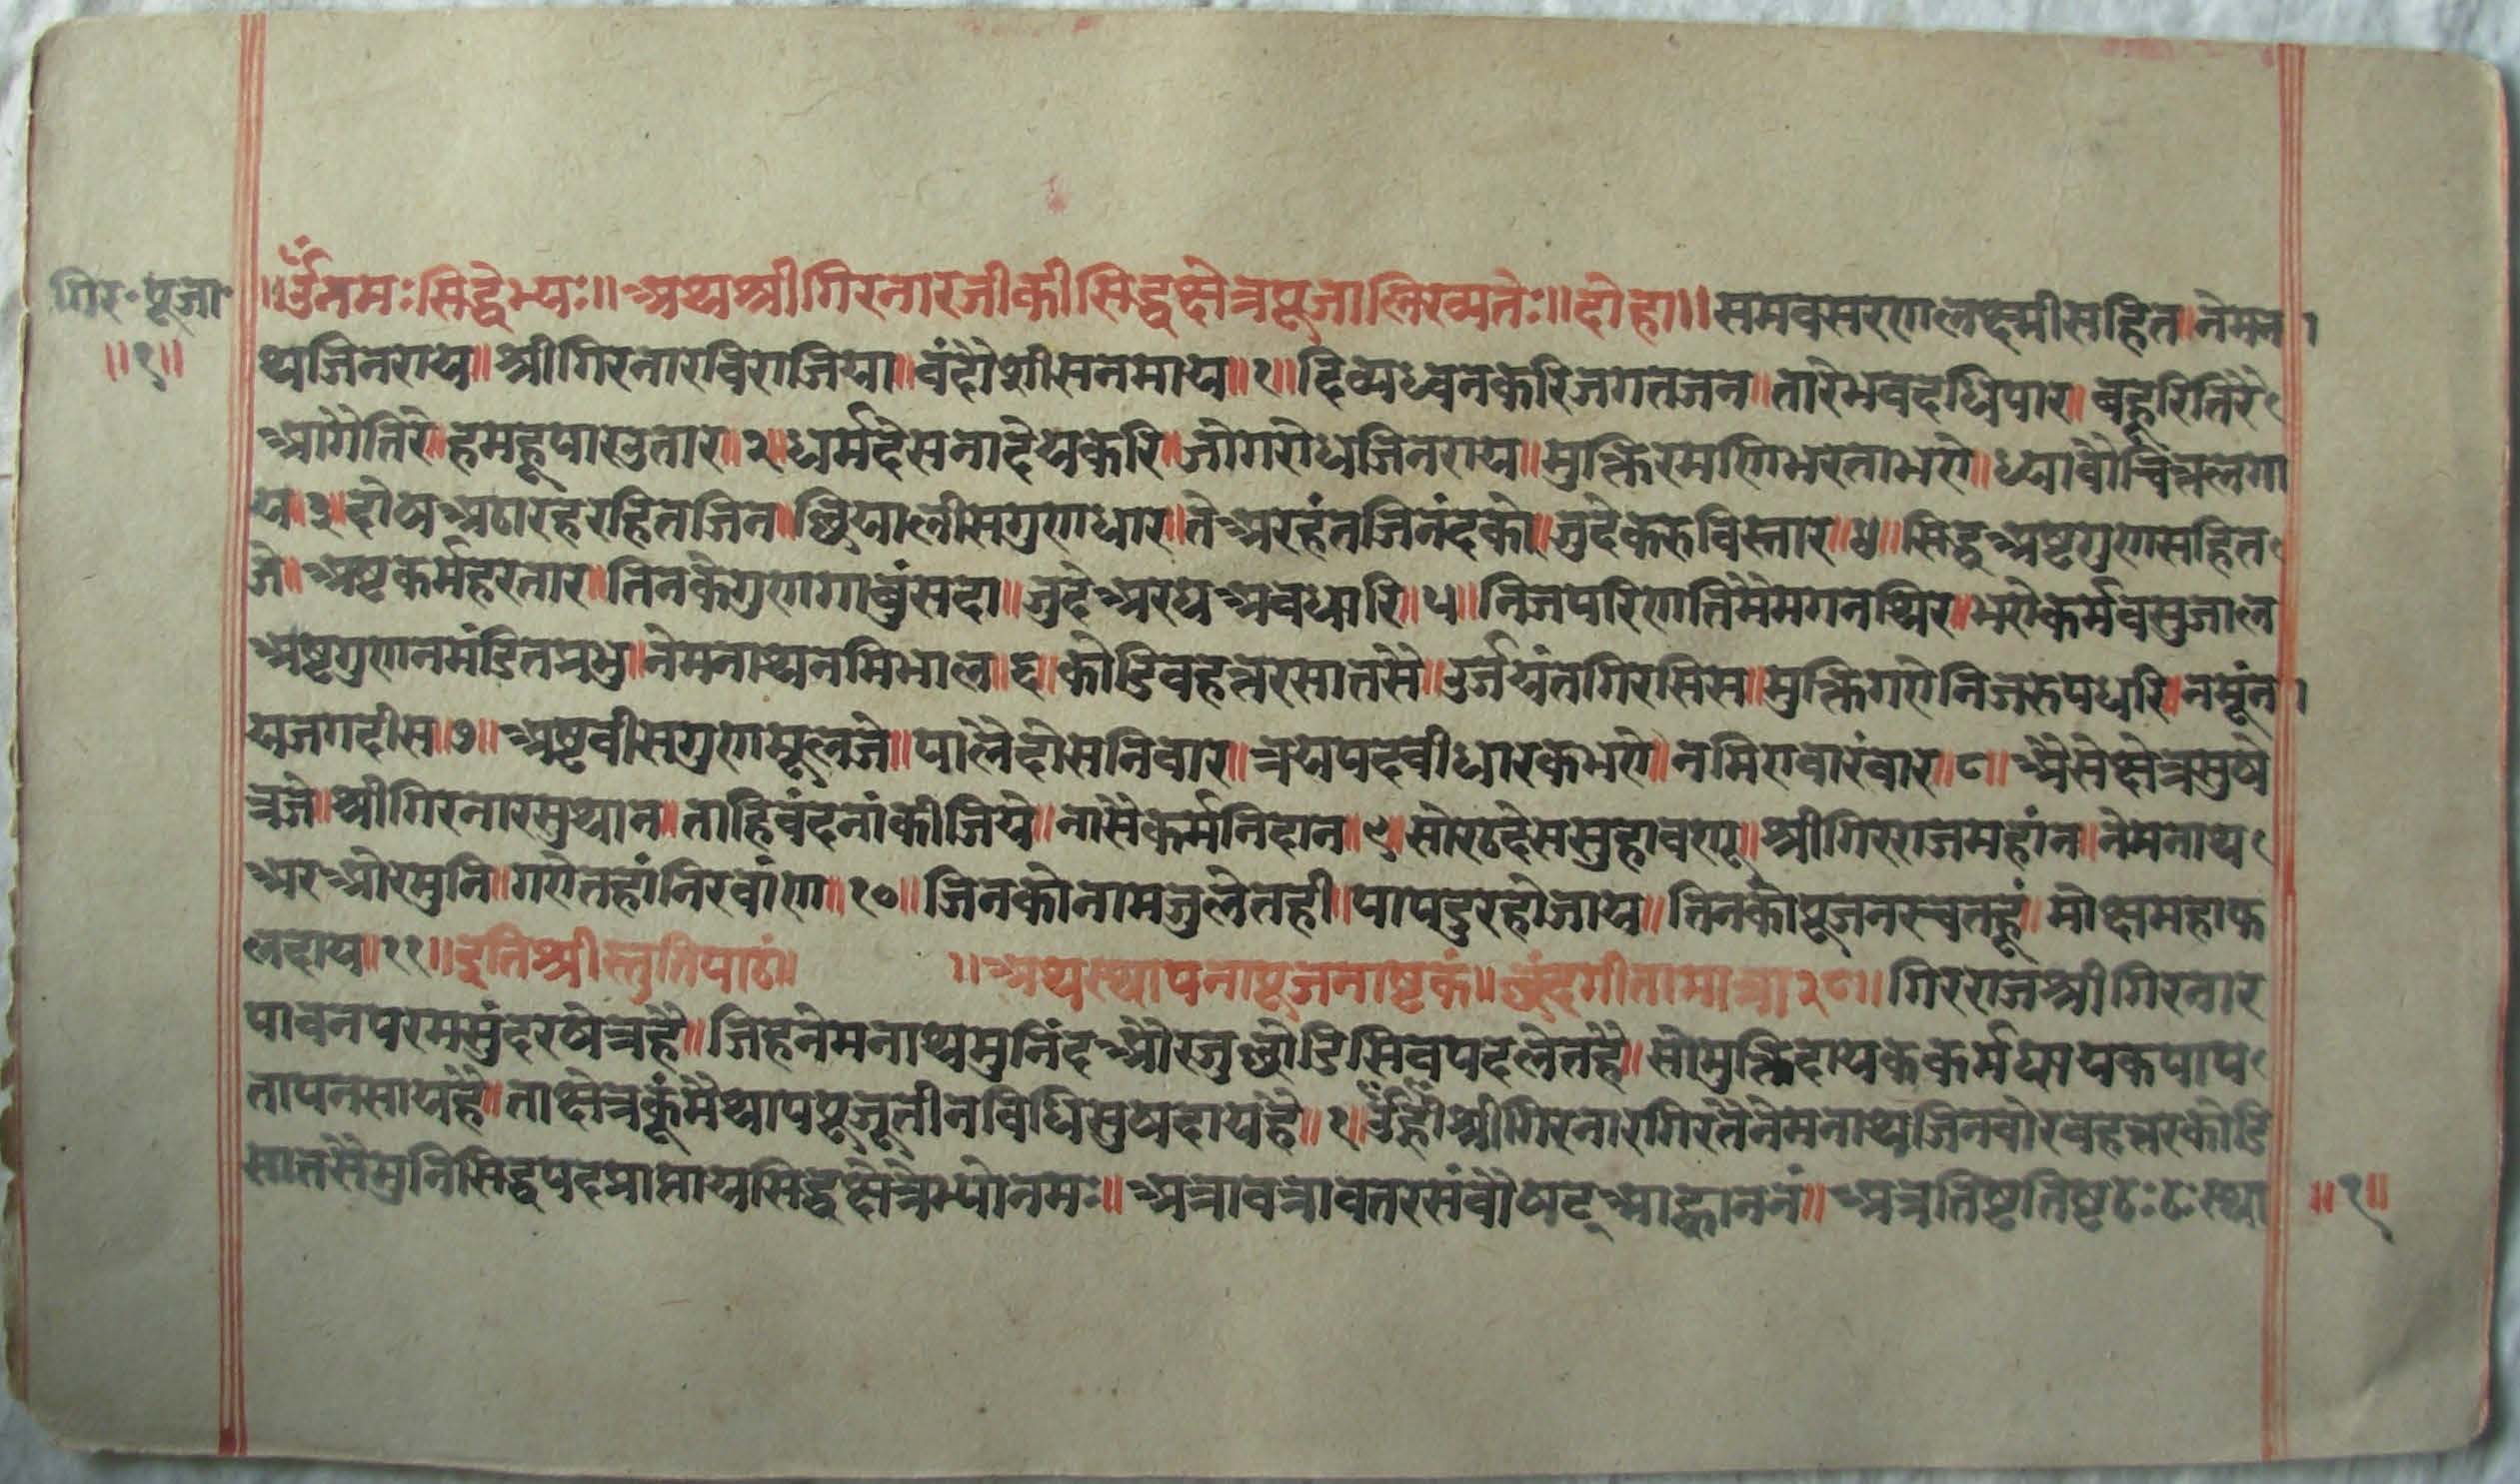 गिर॰पूजा॰
॥१॥
॥ॐनमःसिद्धेभ्यः॥अथश्रीगिरनारजीकीसिद्धक्षेत्रपूजालिख्यतेः॥दोहा॥समवसरणलक्ष्मीसहित॥नेमना
थजिनराय॥श्रीगिरनारविराजिया॥वंदौशीसनमाय॥१॥दिव्यध्वनकरिजगतजन॥तारेभवदधिपार॥बहूरितिरै
आगैतिरे॥हमहूपारउतार॥२॥धर्मदेसनादेयकरि॥जोगरोधजिनराय॥मुक्तिरमणिभरताभए॥ध्यावौचित्तलगा
य॥३॥दोषअठारहरहितजिन॥छियालीसगुणधार॥ते अरहंतजिनंदको॥जुदेकरुविस्तार॥४॥सिद्धअष्टगुणसहित
जे॥अष्टकर्महरतार॥तिनकेगुणगावुंसदा॥जुदेअरघअवधारि॥५॥निजपरिणतिमैमगनथिर॥भएकर्मवसुजाल
अष्टगुणनमंडितप्रभु॥नेमनाथनमिभाल॥६॥कोडिवहत्तरसातसै॥उर्जयंतगिरसिस॥मुक्तिगएनिजरुपधरि॥नमूंत्रा
यजगदीस॥७॥अष्टवीसगुणमूलजे॥पालैदोसनिवार॥त्रयपदवीधारकभए॥नमिएवारंवार॥८॥अैसेक्षेत्रसुषे
त्रजे॥श्रीगिरनारसुथान॥ताहिवंदनांकीजिये॥नासैकर्मनिदान॥९॥सोरठदेससुहावणू॥श्रीगिरराजमहांन॥नेमनाथ
अरओरमुनि॥गएतहांनिरवांण॥१०॥जिनकोनामजुलेतही॥पापदुरहोजाय॥तिनकोपूजनरचतहूं॥मोक्षमहाफ
लदाय॥११॥इतिश्रीस्तुतिपाठं॥ ॥अथस्थापनापूजनाष्टकं॥छंदगीतामात्रा२८॥गिरराजश्रीगिरनार
पावनपरमसुंदरषेत्रहै॥जिहनेमनाथमुनिंदऔरजुछोडिसिवपदलेतहै॥सोमुक्तिदायककर्मघायकपाप
तापनसायहै॥ताक्षेत्रकूंमैथापपूजूतीनविधिसुषदायहै॥१॥ॐह्रींश्रीगिरनारगिरतैनेमनाथजिनवोरवहत्तरकोडि
सातसैमुनिसिद्धपदप्राप्तायसिद्धक्षेत्रेभ्योनमः॥अत्रावत्रावतरसंवौषट्आह्वाननं॥अत्रतिष्टतिष्टठःठःस्था
॥१॥